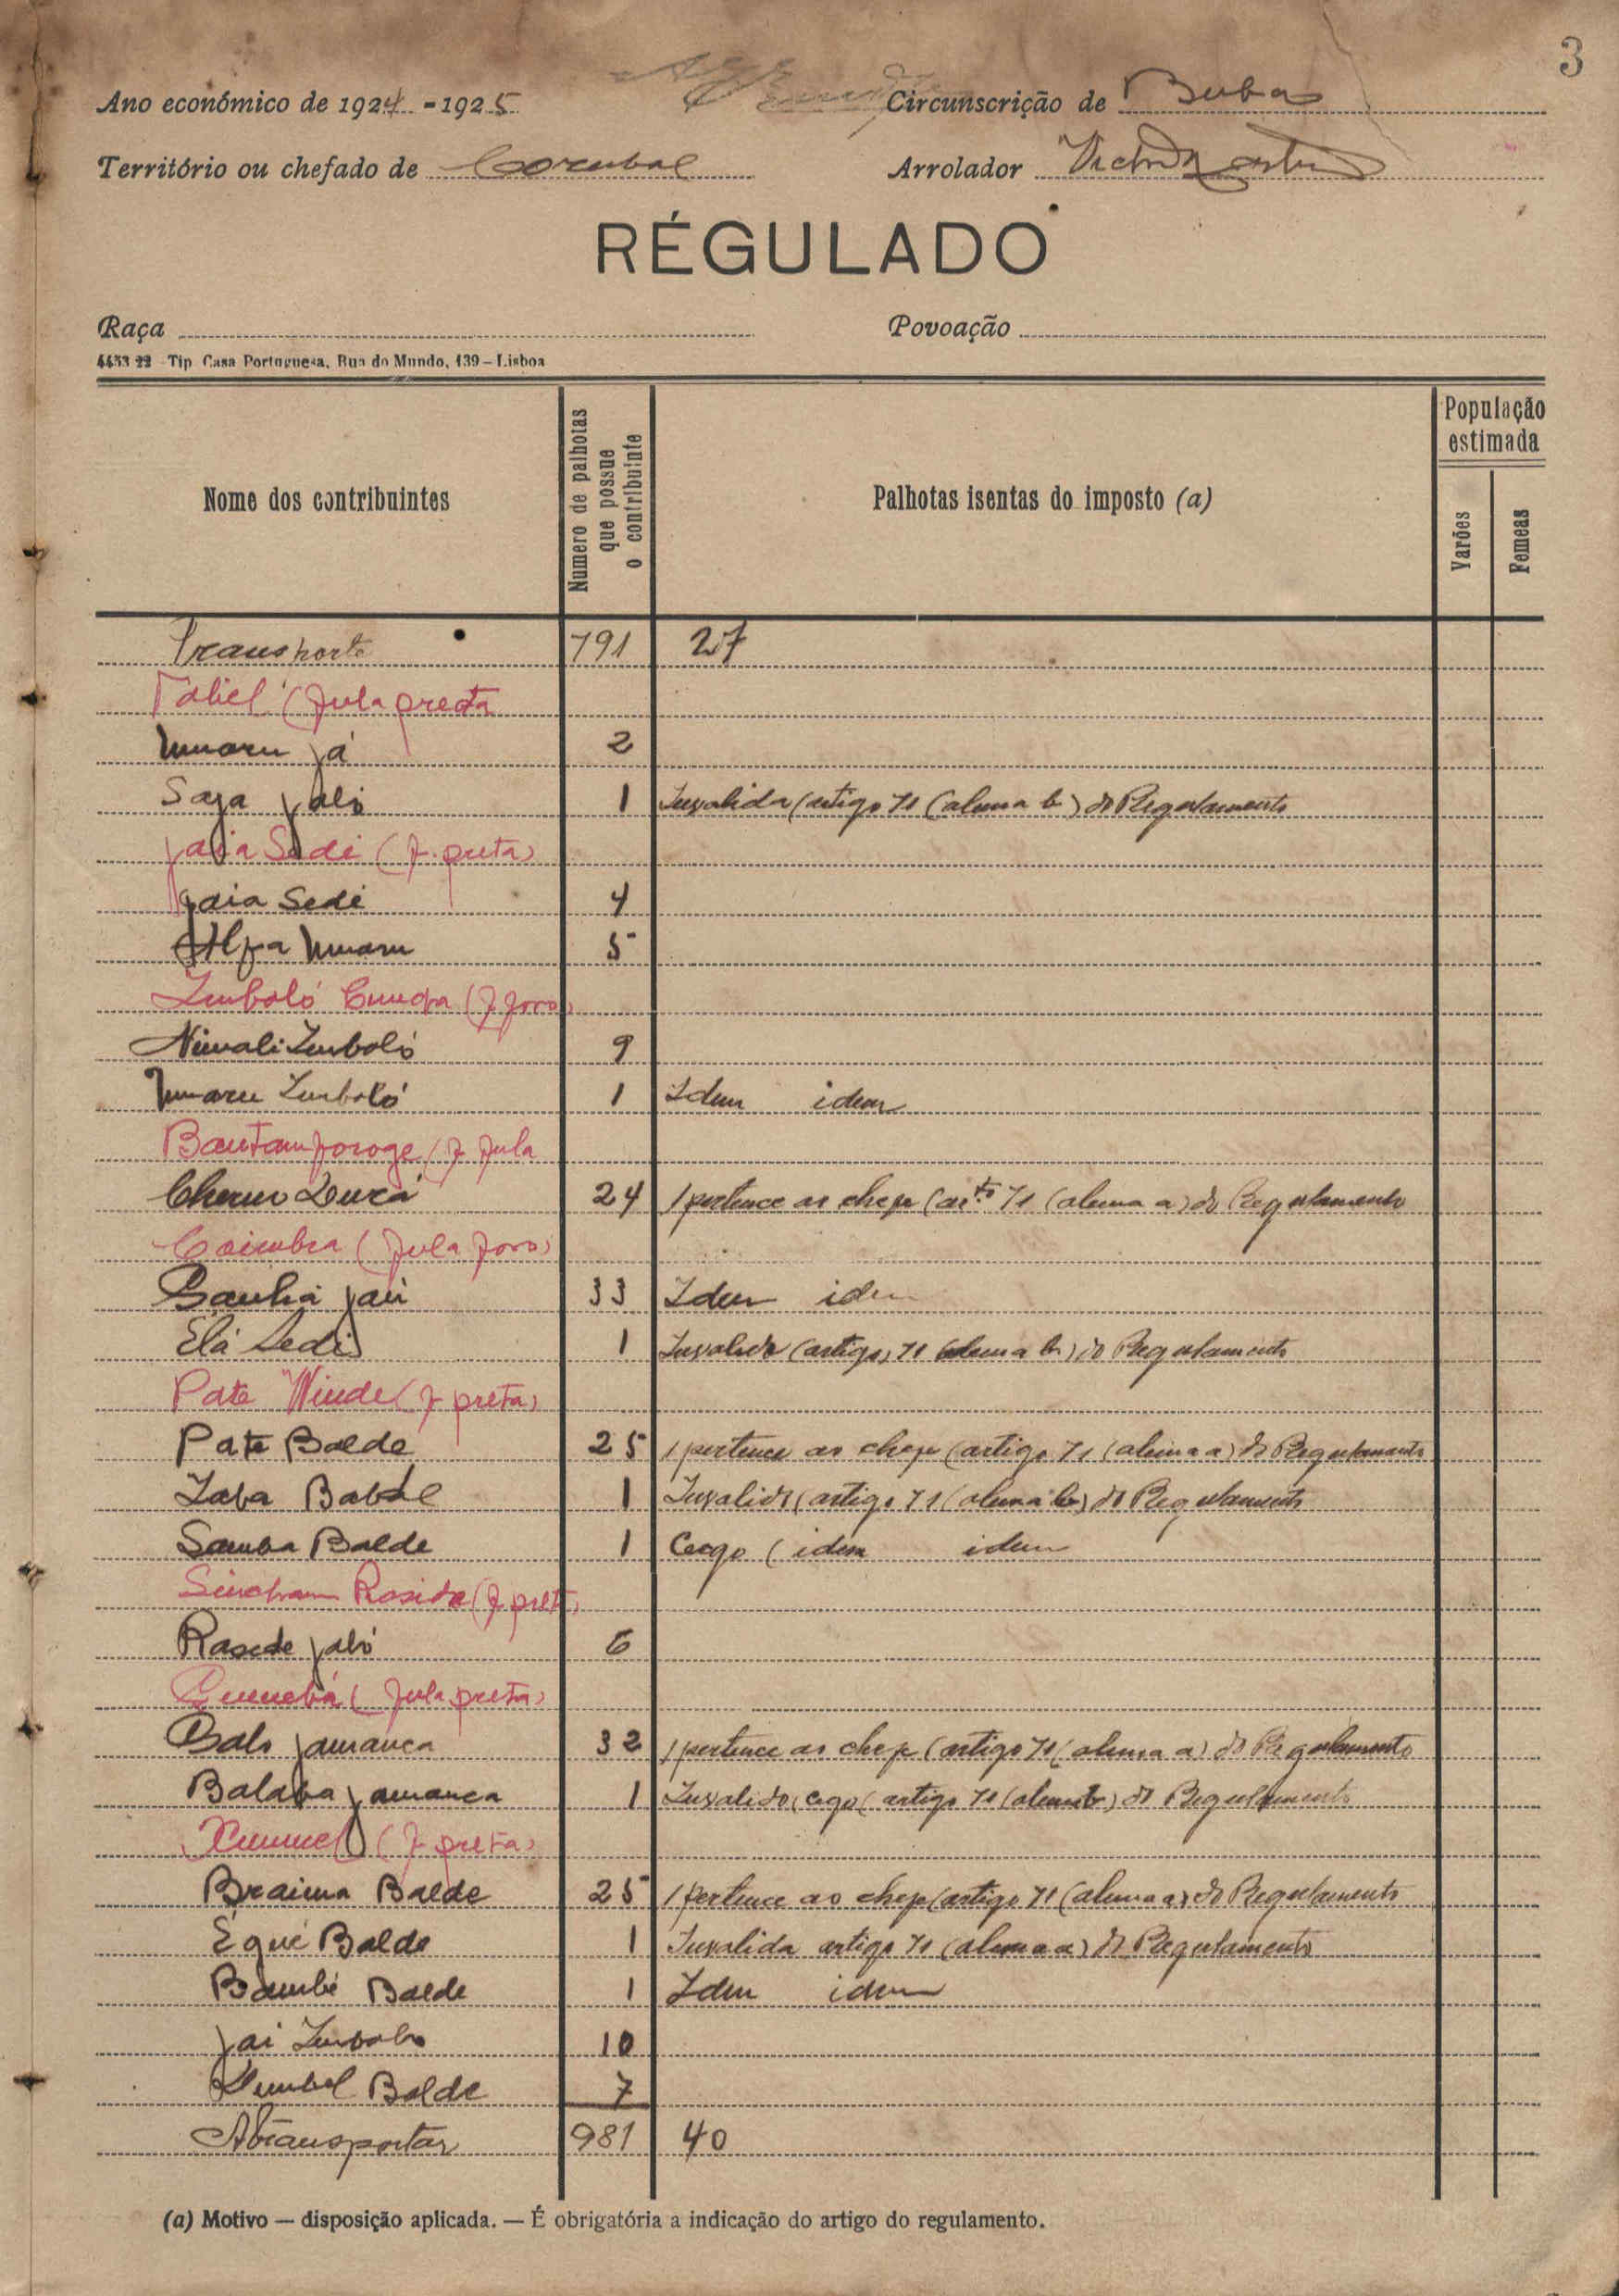 3
Ano económico de 1924 - 1925 Circunscrição de Buba
Território ou chefado de Corubal Arrolador Victor
RÉGULADO
Raça Povoação
4453 22 - Tip. Casa Portuguesa, Rua do Mundo, 139 - Lisboa
Nome dos contribuintes
Numero de palhotas que possue o contribuinte
Palhotas isentas do imposto (a)
População estimada
Varões
Femeas
Transporte 791 27
(fula preta
Umaru Já 2
Jaló 1 Invalida (artigo 71 (alinea b) do Regulamento
Jaia Sedi (f. preta)
Jaia Sedi 4
Alfa Umaru 5
Imbaló Cumba (f foro)
Imbaló 9
Umaru Imbaló 1 Idem idem
(f fula
Cherno Durá 24 1 pertence ao chefe (art.º 71 (alinea a) do Regulamento
Coimbra (fula foro)
Jau 33 Idem idem
Élá Sedi 1 Invalido (artigo 71 (alinea b) do Regulamento
Paté (f preta)
Paté Balde 25 1 pertence ao chefe (artigo 71 (alinea a) do Regulamento
1 Invalido (artigo 71 (alinea b) do Regulamento
Samba Balde 1 Cego (idem idem
(f preta)
Jaló 6
(fula preta)
Jamanca 32 1 pertence ao chefe (artigo 71 (alinea a) do Regulamento
Jamanca 1 Invalido, cego (artigo 71 (alinea b) do Regulamento
(f preta)
Braima Balde 25 1 pertence ao chefe (artigo 71 (alinea a) do Regulamento
Égué Balde 1 Invalida artigo 71 (alinea a) do Regulamento
Bambé Balde 1 Idem idem
Jai 10
Balde 7
A transportar 981 40
(a) Motivo — disposição aplicada. — É obrigatória a indicação do artigo do regulamento.